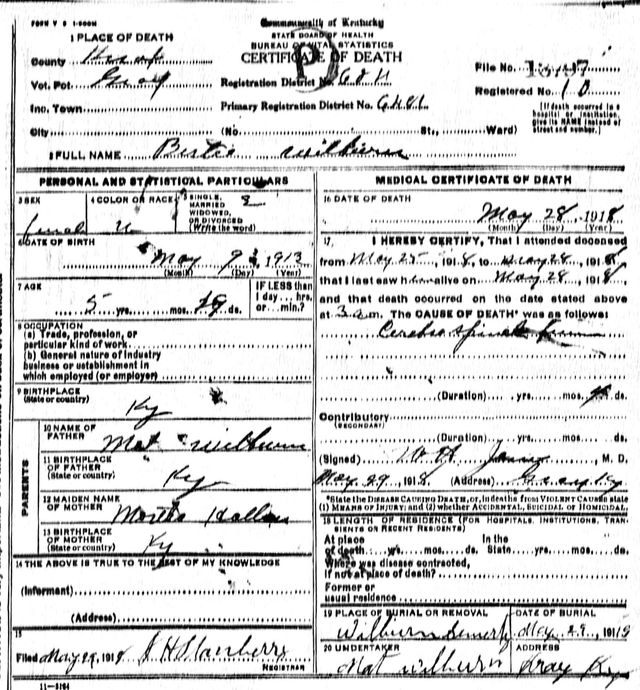 FORM V S 1-500M
Commonwealth of Kentucky
STATE BOARD OF HEALTH
BUREAU OF VITAL STATISTICS
CERTIFICATE OF DEATH
1 PLACE OF DEATH
County Knox
Vot. Pct. Gray
Inc. Town
City
(No. St., Ward)
Registration District No.
Primary Registration District No.
File No.
Registered No. 10
[If death occurred in a
hospital or institution,
give its NAME instead of
street and number.]
2 FULL NAME Wilburn
PERSONAL AND STATISTICAL PARTICULARS
3 SEX
female
4 COLOR OR RACE
5 SINGLE,
MARRIED
WIDOWED,
OR DIVORCED
(Write the word)
S
6 DATE OF BIRTH
May 9, 1913
(Month) (Day) (Year)
7 AGE
5 yrs. mos. 19 ds.
IF LESS than
1 day... hrs.
or... min.?
8 OCCUPATION
(a) Trade, profession, or
particular kind of work
(b) General nature of industry
business or establishment in
which employed (or employer)
9 BIRTHPLACE
(State or country)
Ky
PARENTS
10 NAME OF
FATHER
Mat Wilburn
11 BIRTHPLACE
OF FATHER
(State or country)
Ky
12 MAIDEN NAME
OF MOTHER
13 BIRTHPLACE
OF MOTHER
(State or country)
Ky
14 THE ABOVE IS TRUE TO THE BEST OF MY KNOWLEDGE
(Informant)
(Address)
15
Filed May 29, 1918
REGISTRAR
11-3184
MEDICAL CERTIFICATE OF DEATH
16 DATE OF DEATH
May 28, 1918
(Month) (Day) (Year)
17. I HEREBY CERTIFY, That I attended deceased
from May 25, 1918, to May 28, 1918,
that I last saw her alive on May 28, 1918,
and that death occurred on the date stated above
at 3 a.m. The CAUSE OF DEATH* was as follows:
Cerebro spinal
(Duration) yrs. mos. ds.
Contributory
(SECONDARY)
(Duration) yrs. mos. ds.
(Signed) M. D.
May 29, 1918 (Address) Gray Ky
*State the DISEASE CAUSING DEATH, or, in deaths from VIOLENT CAUSES state
(1) MEANS OF INJURY; and (2) whether ACCIDENTAL, SUICIDAL or HOMICIDAL.
18 LENGTH OF RESIDENCE (FOR HOSPITALS, INSTITUTIONS, TRANSIENTS OR RECENT RESIDENTS)
At place
of death... yrs. mos. ds.
In the
State yrs. mos. ds.
Where was disease contracted,
If not at place of death?
Former or
usual residence
19 PLACE OF BURIAL OR REMOVAL
Wilburn
DATE OF BURIAL
May 29, 1918
20 UNDERTAKER
Mat Wilburn
ADDRESS
Gray Ky